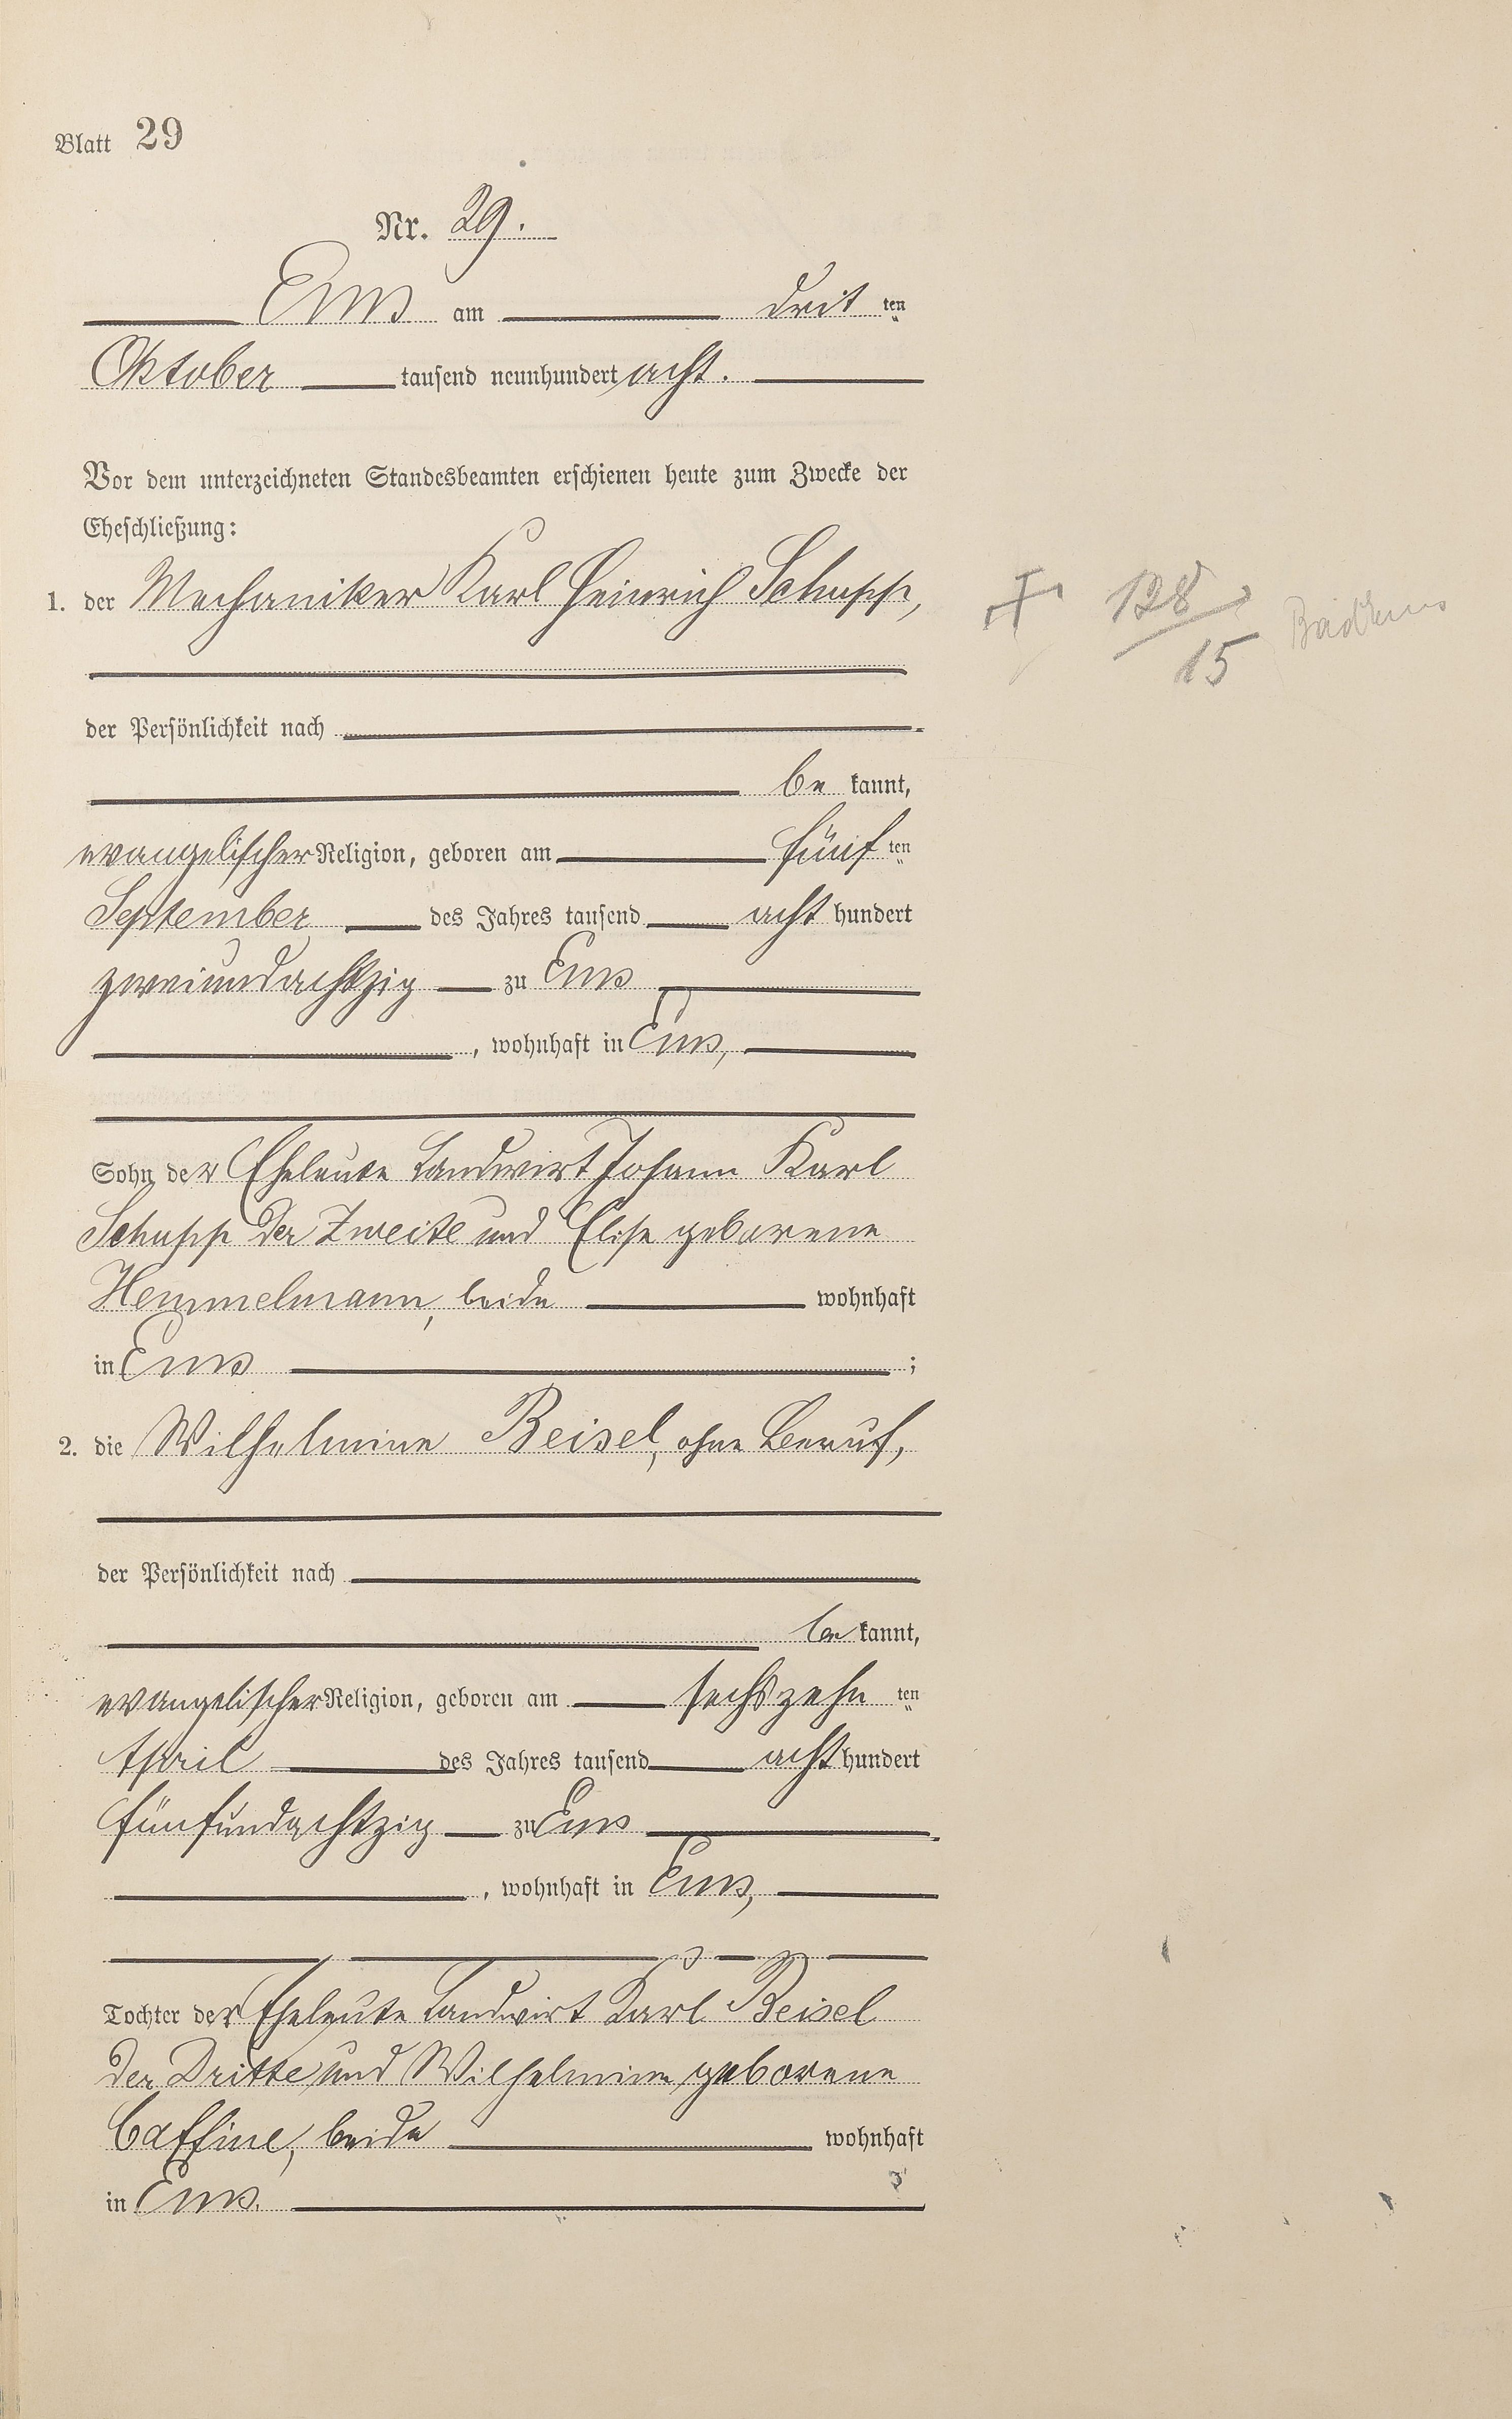 Blatt 29
Nr. 29.
Ems am drit ten
Oktober tausend neunhundert acht.
Vor dem unterzeichneten Standesbeamten erschienen heute zum Zwecke der
Eheschließung:
1. der Mechaniker Karl Heinrich Schupp,
† 128/15 Bad Ems
der Persönlichkeit nach
be kannt,
evangelischer Religion, geboren am fünf ten
September des Jahres tausend acht hundert
zweiundachtzig zu Ems
, wohnhaft in Ems,
Sohn der Eheleute Landwirt Johann Karl
Schupp der Zweite und Elise geborene
Hemmelmann, beide wohnhaft
in Ems ;
2. die Wilhelmine Beisel, ohne Beruf,
der Persönlichkeit nach
be kannt,
evangelischer Religion, geboren am sechszehn ten
April des Jahres tausend acht hundert
fünfundachtzig zu Ems
, wohnhaft in Ems,
Tochter der Eheleute Landwirt Karl Beisel
der Dritte und Wilhelmine geborene
beide wohnhaft
in Ems.